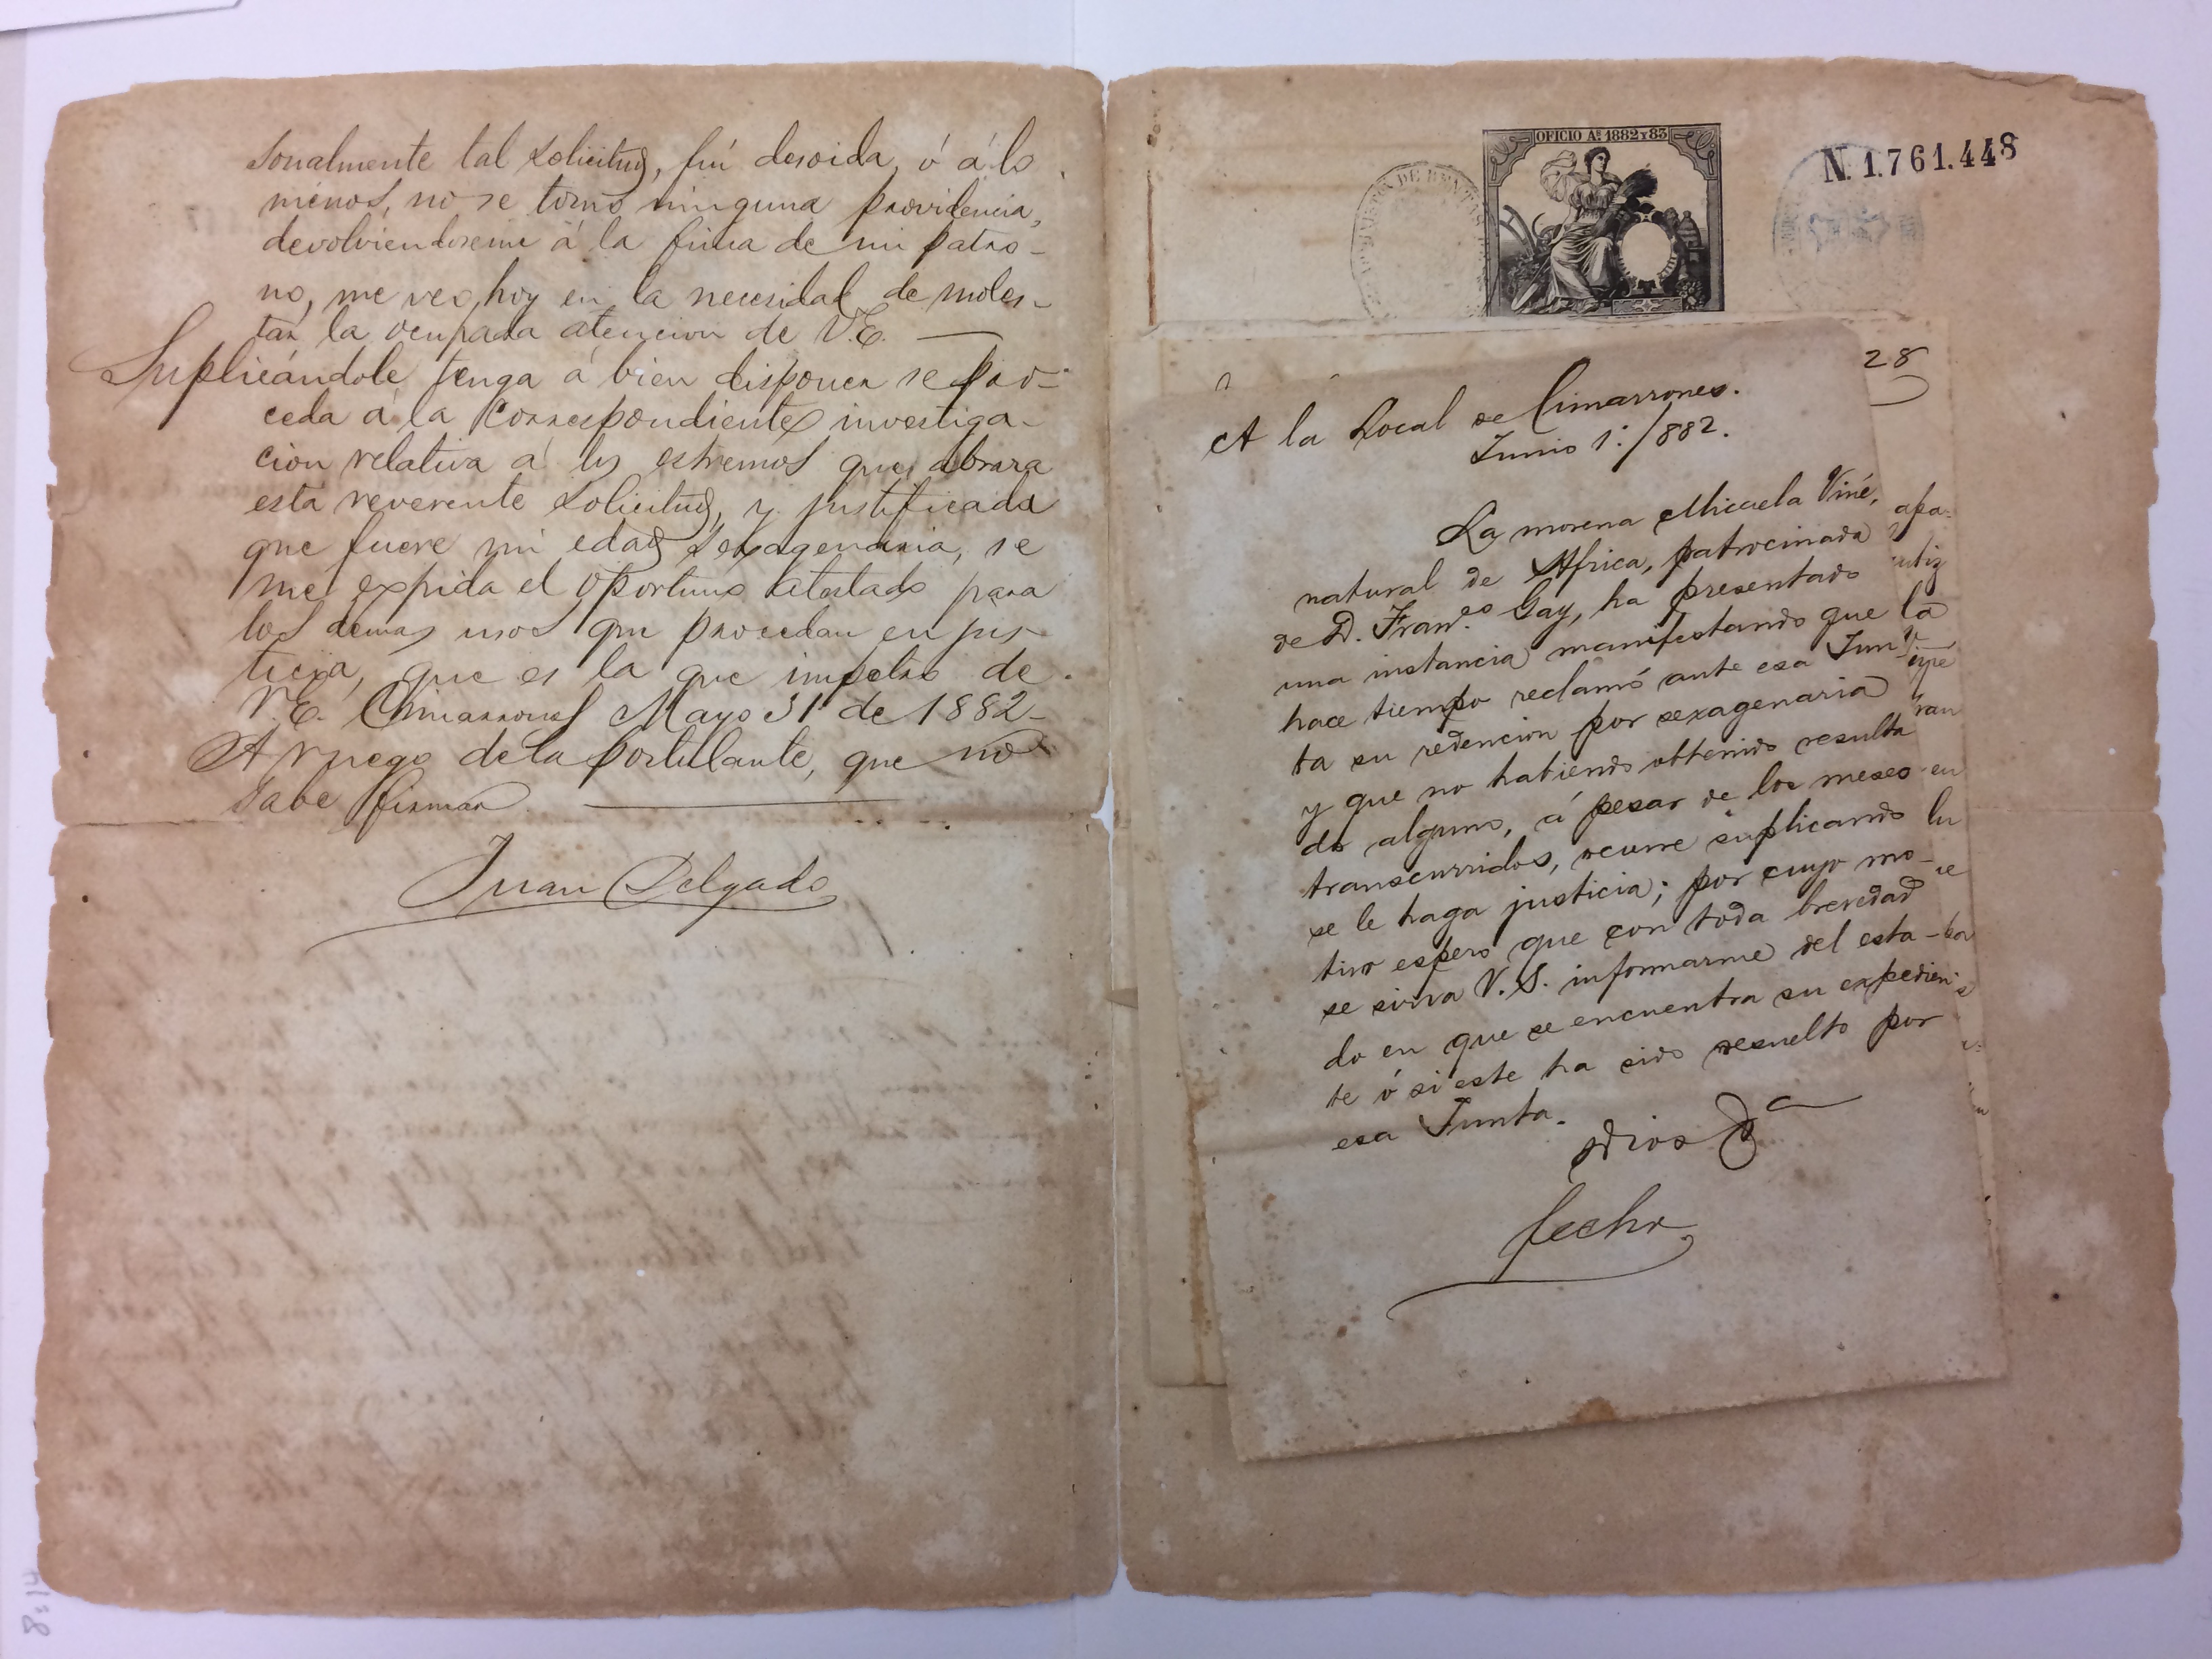 sonalmente tal solicitud, fuí desoida, ó á lo
menos, no se tomó ninguna providencia,
devolviendoseme á la finca de mi patro-
no, me veo hoy en la necesidad de moles-
tar la ocupada atencion de V.E.
Suplicándole tenga á bien disponer se pro-
ceda á la correspondiente investiga-
cion relativa á los estremos que abraza
esta reverente solicitud, y justificada
que fuere mi edad sexagenaria, se
me expida el oportuno atestado para
los demas usos que procedan en jus-
ticia, que es la que impetro de
V.E. Cimarrones Mayo 31 de 1882-
A ruego de la postulante, que no
sabe firmar
Juan Delgado
OFICIO Aº 1882 Y 83
N. 1.761.448
28
A la Local de Cimarrones.
Junio 1º/882.
La morena Micaela Viné,
natural de Africa, patrocinada
de D. Franco Gay, ha presentado
una instancia manifestando que
hace tiempo reclamó ante esa Jun-
ta su redencion por sexagenaria
y que no habiendo obtenido resulta
do alguno, á pesar de los meses
transcurridos, ocurre suplicando
se le haga justicia; por cuyo mo-
tivo espero que con toda brevedad
se sirva V.S. informarme del esta-
do en que se encuentra su expedien-
te ó si este ha sido resuelto por
esa Junta.
Dios
fecho